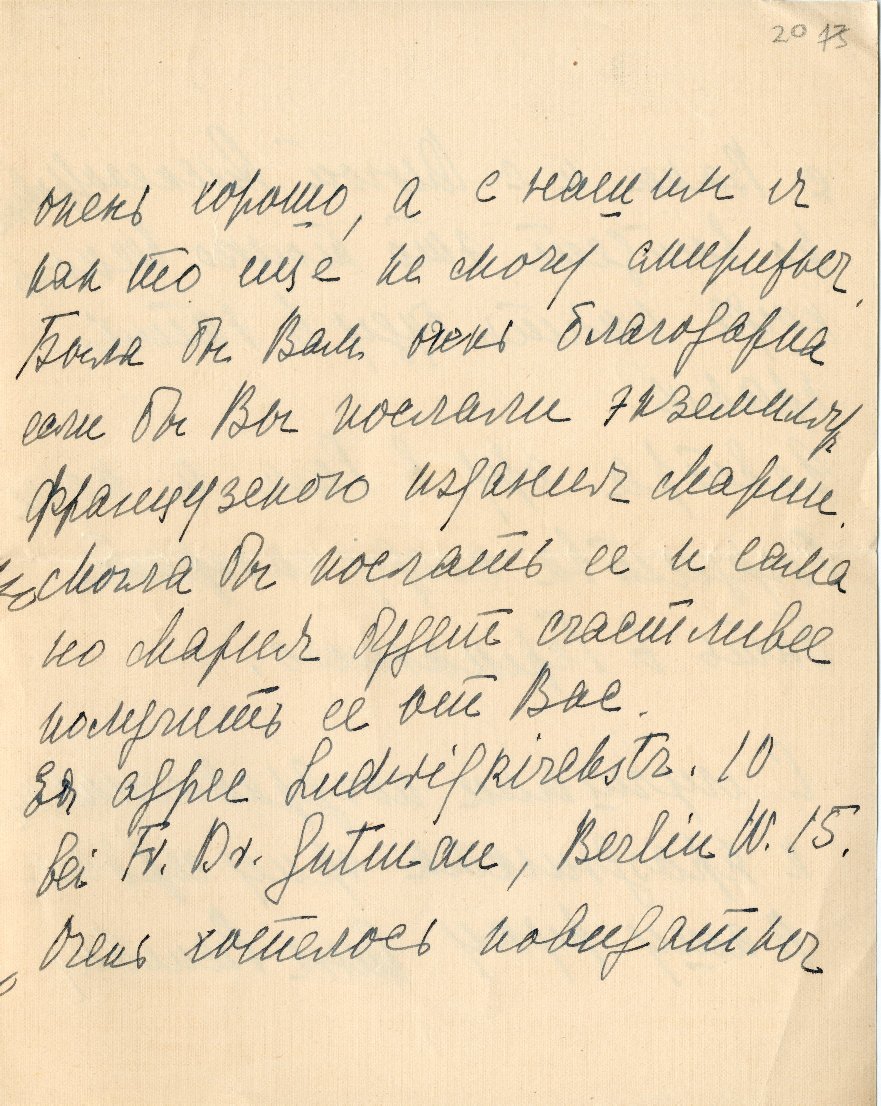 20 13
очень хорошо, а с нашим я
как то ещё не могу смириться.
Была бы Вам очень благодарна
если бы Вы послали экземпляр
французского издания Марии.
Могла бы послать ее и сама
но Мария будет счастливее
получить ее от Вас.
Ея адрес Ludwigkirchstr. 10
bei Fr. Dr. Gutman, Berlin W. 15.
Очень хотелось повидаться